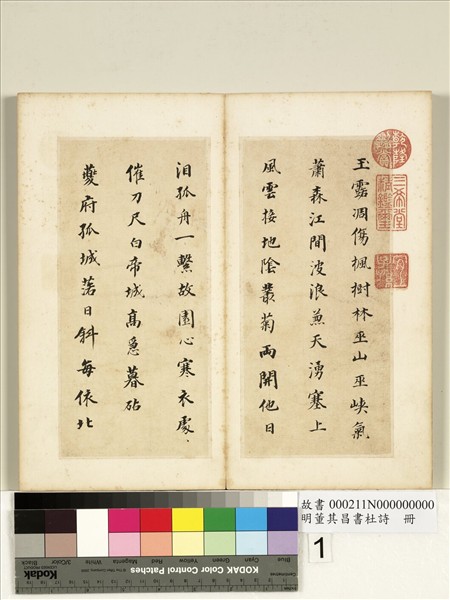 乾隆鑑賞
三希堂精鑑璽
宜子孫
玉露凋傷楓樹林巫山巫峽氣
蕭森江間波浪兼天湧塞上
風雲接地陰叢菊兩開他日
泪孤舟一繫故園心寒衣處〻
催刀尺白帝城高急暮砧
夔府孤城落日斜每依北
故書 000211N000000000
明董其昌書杜詩 冊
1
Blue Cyan Green Yellow Red Magenta White 3/Color Black
Kodak Color Control Patches